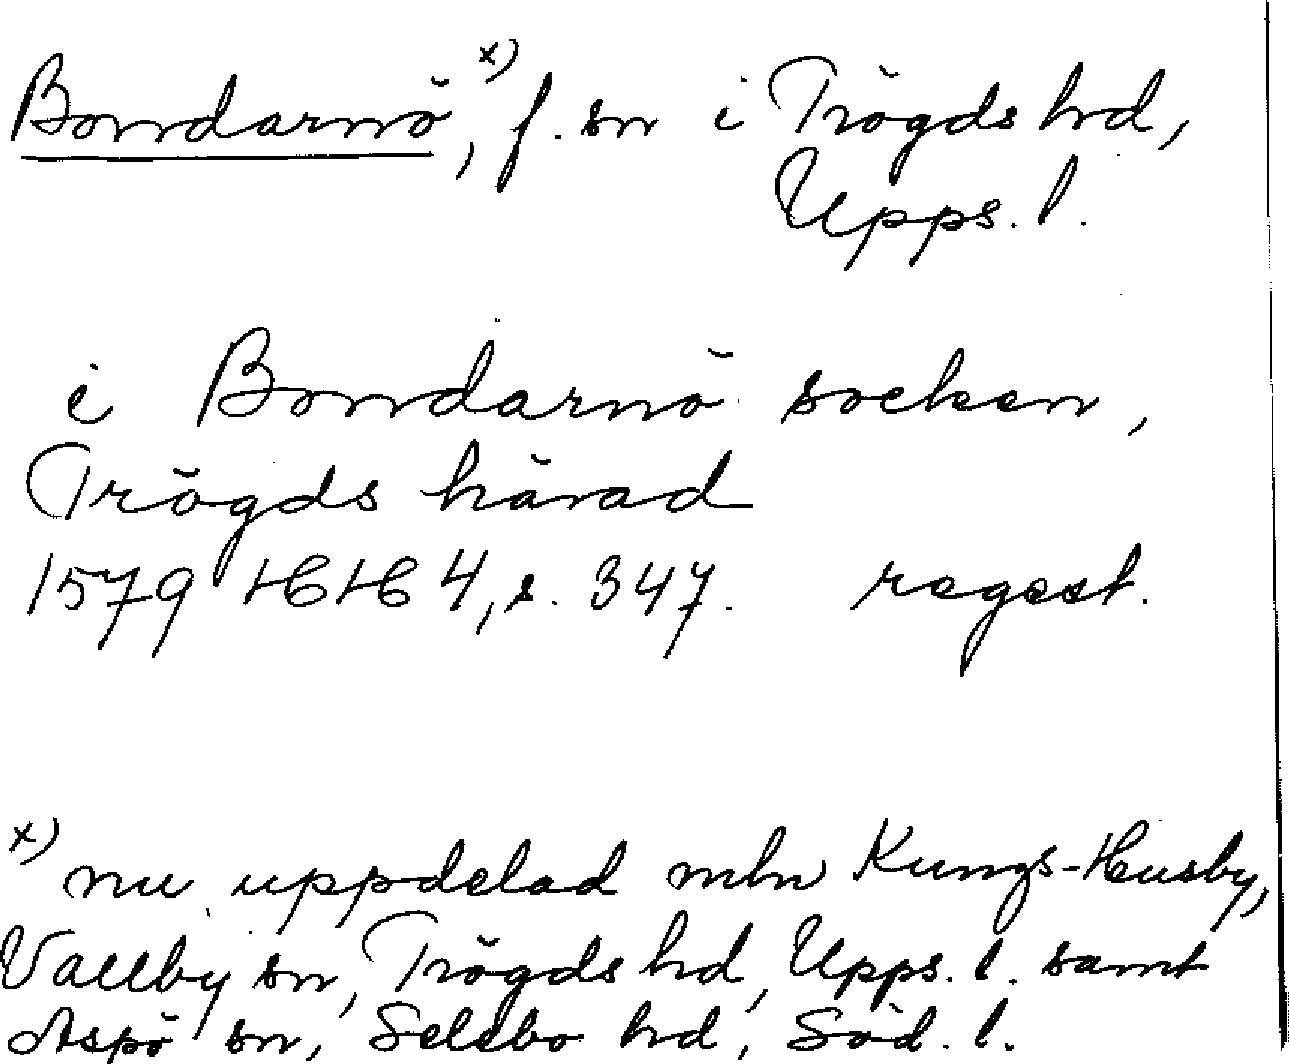 Bondarnö,x) f. sn i Trögds hd,
Upps. l.
i Bondarnö socken,
Trögds härad
1579 HH 4, s. 347. regest.
x) nu uppdelad mln Kungs-Husby,
Vallby sn, Trögds hd, Upps. l. samt
Aspö sn, Selebo hd, Söd. l.